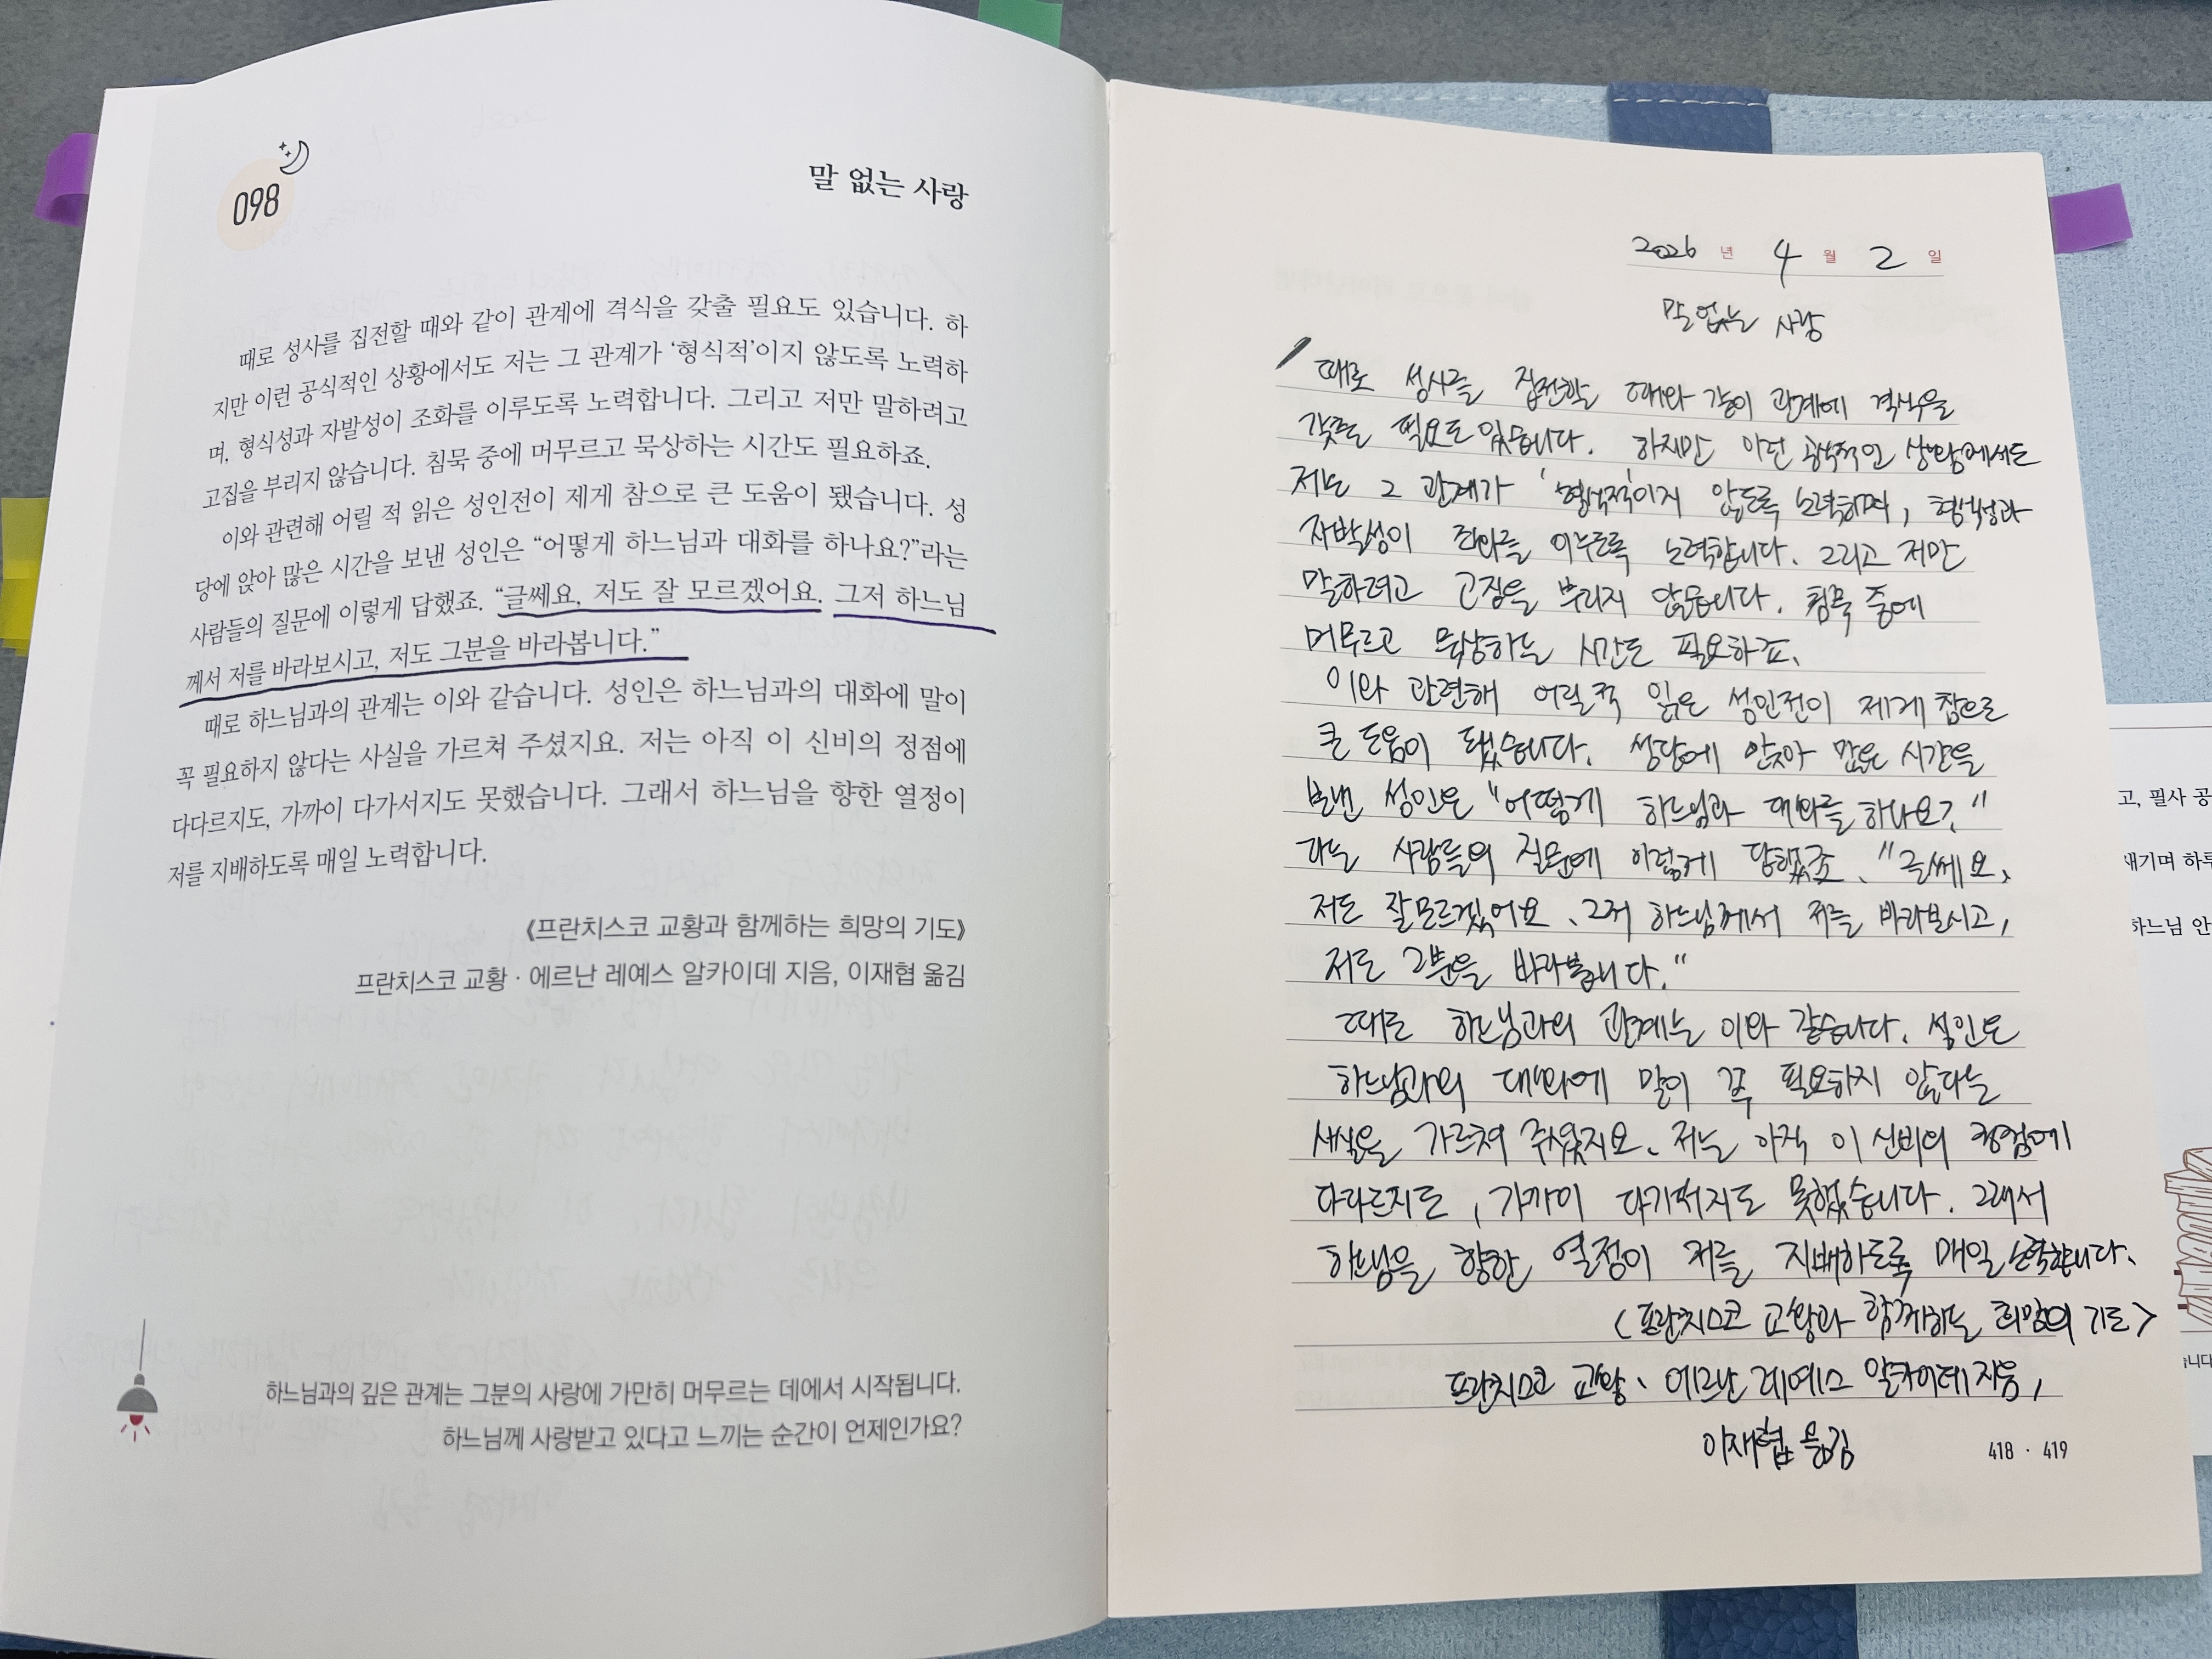 098
말 없는 사랑
때로 성사를 집전할 때와 같이 관계에 격식을 갖출 필요도 있습니다. 하
지만 이런 공식적인 상황에서도 저는 그 관계가 ‘형식적’이지 않도록 노력하
며, 형식성과 자발성이 조화를 이루도록 노력합니다. 그리고 저만 말하려고
고집을 부리지 않습니다. 침묵 중에 머무르고 묵상하는 시간도 필요하죠.
이와 관련해 어릴 적 읽은 성인전이 제게 참으로 큰 도움이 됐습니다. 성
당에 앉아 많은 시간을 보낸 성인은 “어떻게 하느님과 대화를 하나요?”라는
사람들의 질문에 이렇게 답했죠. “글쎄요, 저도 잘 모르겠어요. 그저 하느님
께서 저를 바라보시고, 저도 그분을 바라봅니다.”
때로 하느님과의 관계는 이와 같습니다. 성인은 하느님과의 대화에 말이
꼭 필요하지 않다는 사실을 가르쳐 주셨지요. 저는 아직 이 신비의 정점에
다다르지도, 가까이 다가서지도 못했습니다. 그래서 하느님을 향한 열정이
저를 지배하도록 매일 노력합니다.
《프란치스코 교황과 함께하는 희망의 기도》
프란치스코 교황 · 에르난 레예스 알카이데 지음, 이재협 옮김
하느님과의 깊은 관계는 그분의 사랑에 가만히 머무르는 데에서 시작됩니다.
하느님께 사랑받고 있다고 느끼는 순간이 언제인가요?
2026 년 4 월 2 일
말 없는 사랑
때로 성사를 집전할 때와 같이 관계에 격식을
갖출 필요도 있습니다. 하지만 이런 공식적인 상황에서도
저는 그 관계가 '형식적'이지 않도록 노력하며, 형식성과
자발성이 조화를 이루도록 노력합니다. 그리고 저만
말하려고 고집을 부리지 않습니다. 침묵 중에
머무르고 묵상하는 시간도 필요하죠.
이와 관련해 어릴 적 읽은 성인전이 제게 참으로
큰 도움이 됐습니다. 성당에 앉아 많은 시간을
보낸 성인은 "어떻게 하느님과 대화를 하나요?"
라는 사람들의 질문에 이렇게 답했죠. "글쎄요,
저도 잘 모르겠어요. 그저 하느님께서 저를 바라보시고,
저도 그분을 바라봅니다."
때로 하느님과의 관계는 이와 같습니다. 성인은
하느님과의 대화에 말이 꼭 필요하지 않다는
사실을 가르쳐 주셨지요. 저는 아직 이 신비의 정점에
다다르지도, 가까이 다가서지도 못했습니다. 그래서
하느님을 향한 열정이 저를 지배하도록 매일 노력합니다.
<프란치스코 교황과 함께하는 희망의 기도>
프란치스코 교황、에르난 레예스 알카이데 지음,
이재협 옮김
418 · 419
고, 필사 공
새기며 하루
하느님 안